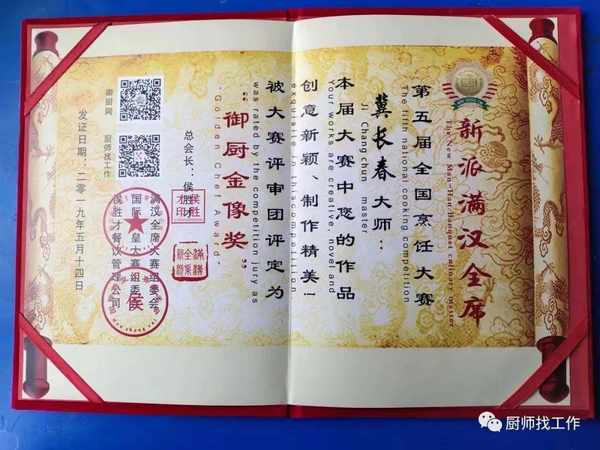 新派满汉全席
The New Man-Han Banquet culinary master
第五届全国烹饪大赛
The fifth national cooking competition
冀长春 大师:
Ji Chang chun master
本届大赛中您的作品
Your works are creative, novel and
创意新颖、制作精美!
exquisite in this competition
被大赛评审团评定为
was rated by the competition jury as
“御厨金像奖”
"Golden Chef Award"
总会长:侯胜才
侯胜才印
满汉全席大赛组委会
侯胜才餐饮管理公司
侯
发证日期:二零一九年五月十四日
御厨网
厨师找工作
厨师找工作